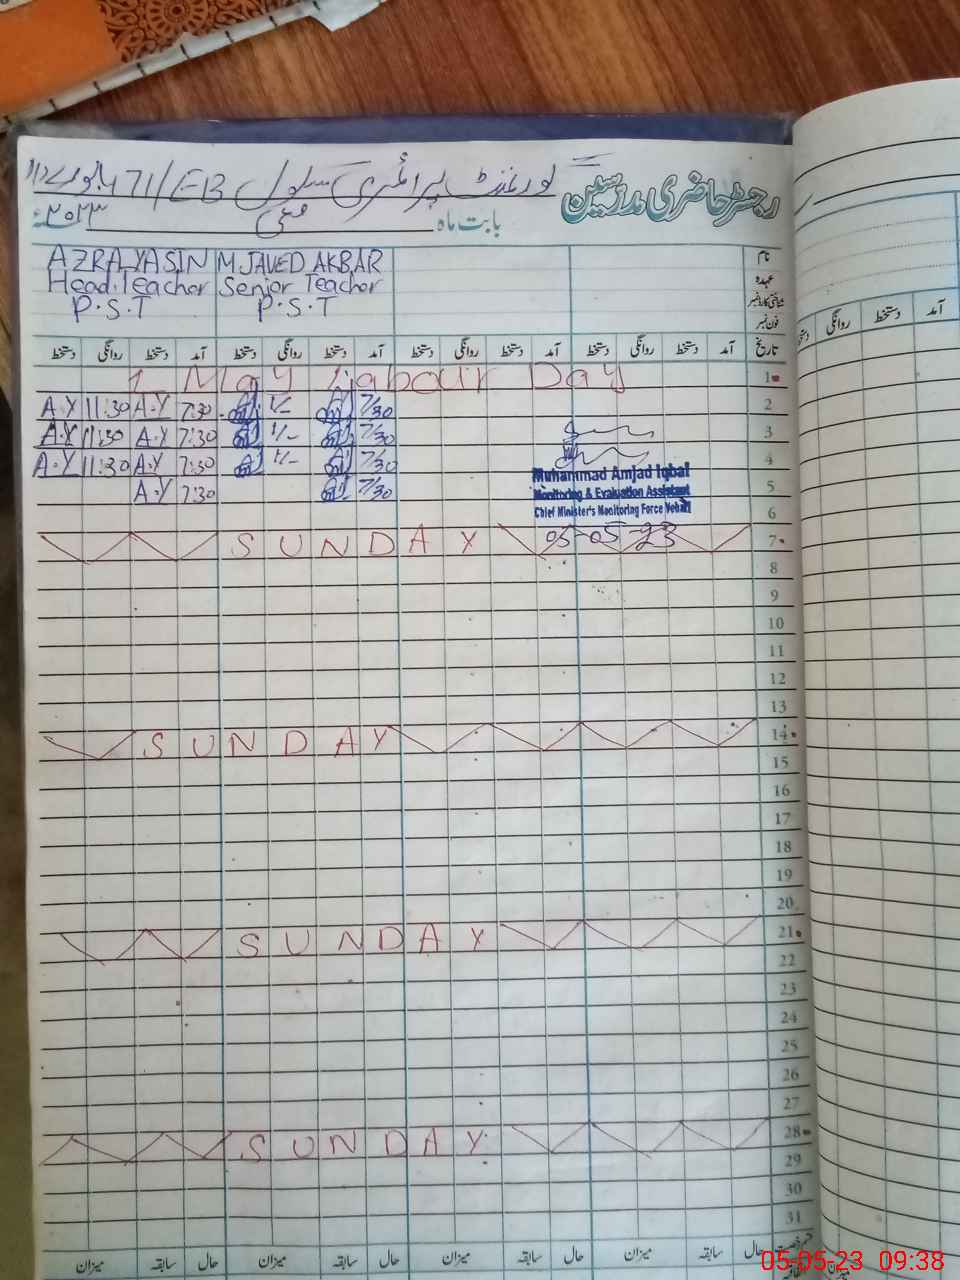 رجسٹر حاضری مدرسین گورنمنٹ پرائمری سکول 471/EB
بابت ماہ مئی ۲۰۲۳ء
نام AZRA YASIN M JAVED AKBAR
عہدہ Head Teacher Senior Teacher
P.S.T P.S.T
فون نمبر
تاریخ آمد دستخط روانگی دستخط آمد دستخط روانگی دستخط آمد دستخط روانگی دستخط آمد دستخط روانگی دستخط
آمد دستخط روانگی
1 1 May Labour Day
2 7/30 1/- 7:30 A.Y 11:30 A.Y
3 7/30 1/- 7:30 A.Y 11:30 A.Y
4 7/30 1/- 7:30 A.Y 11:30 A.Y
5 7/30 7:30 A.Y
Muhammad Amjad Iqbal
Monitoring & Evaluation Assistant
Chief Minister's Monitoring Force Vehari
6
05-05-23
7 SUNDAY
8
9
10
11
12
13
14 SUNDAY
15
16
17
18
19
20
21 SUNDAY
22
23
24
25
26
27
28 SUNDAY
29
30
31
حال سابقہ میزان حال سابقہ میزان حال سابقہ میزان حال سابقہ میزان
05-05-23 09:38